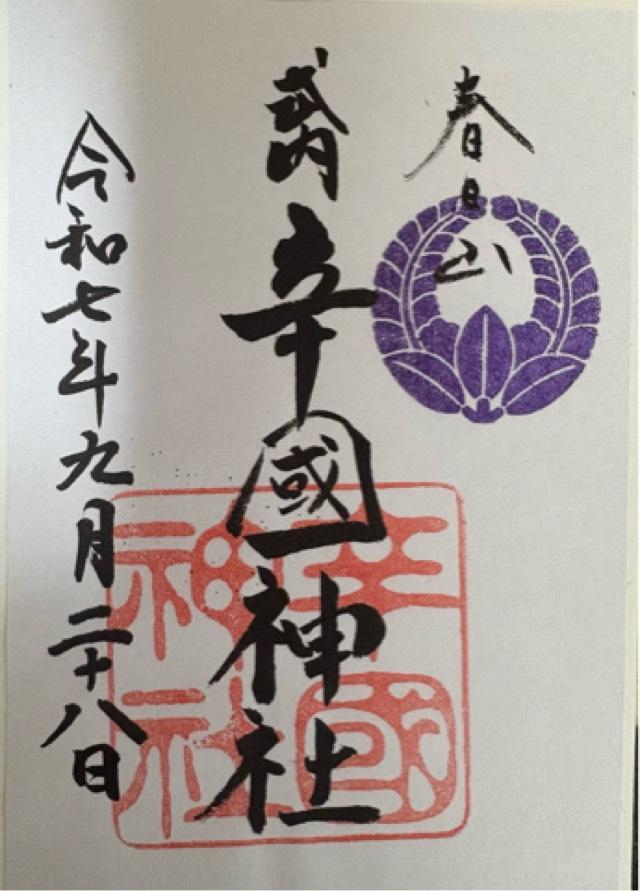 春日山
式内
辛國神社
令和七年九月二十八日
辛國神社